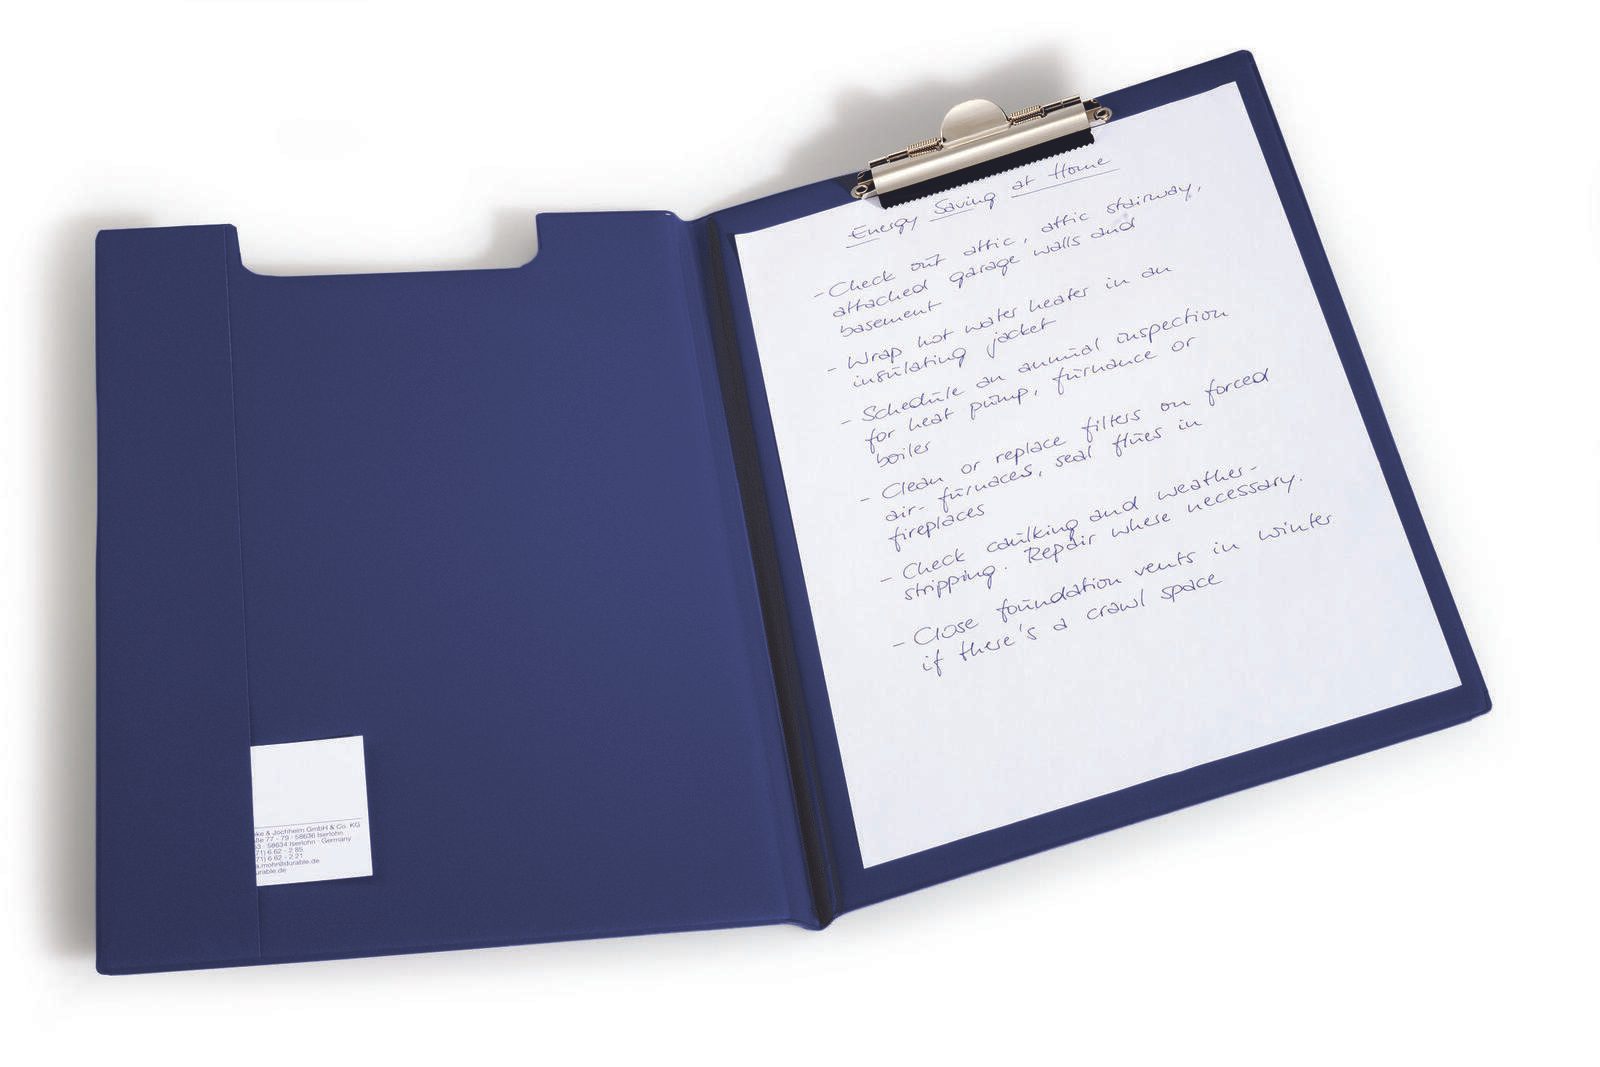 Energy Saving at Home
- Check out attic, attic stairway,
attached garage walls and
basement
- Wrap hot water heater in an
insulating jacket
- Schedule an annual inspection
for heat pump, furnance or
boiler
- Clean or replace filters on forced
air-furnaces, seal flues in
fireplaces
- Check caulking and weather-
stripping. Repair where necessary.
- Close foundation vents in winter
if there's a crawl space
ke & Jochheim GmbH & Co. KG
ße 77 - 79 · 58636 Iserlohn
3 · 58634 Iserlohn · Germany
71) 6 62 - 2 85
71) 6 62 - 2 21
a.mohr@durable.de
urable.de